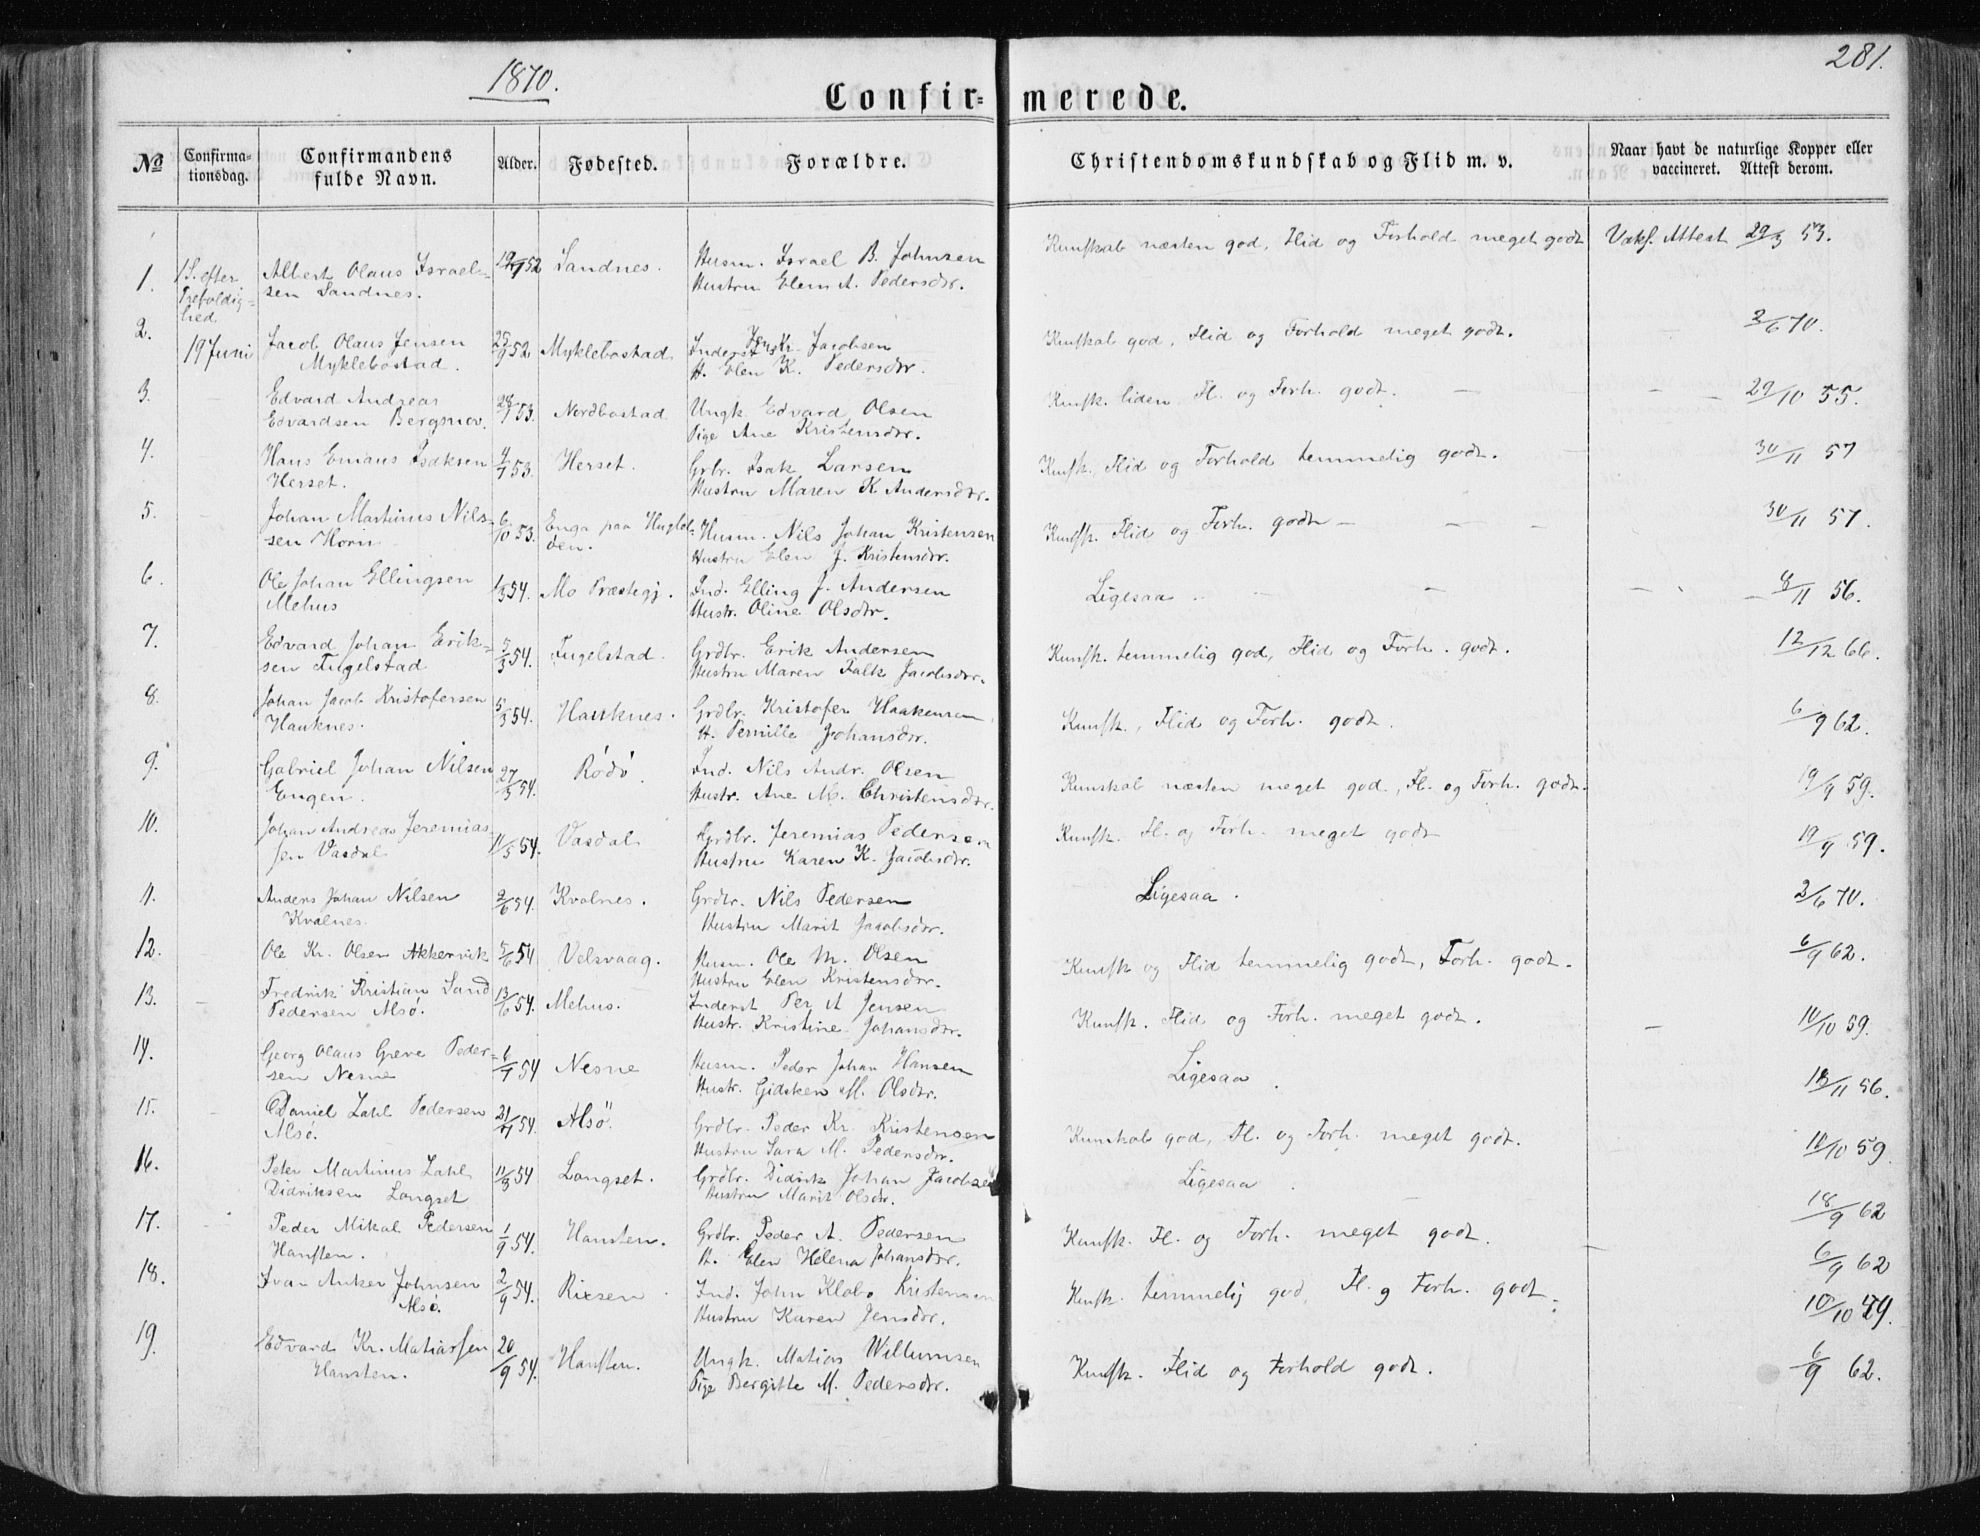 1870.
281.
Confir=
merede.
No
Confirma-
tionsdag.
Confirmandens
fulde Navn.
Alder.
Fødested.
Forældre.
Christendomskundskab og Flid m. v.
Naar havt de naturlige Kopper eller
vaccineret. Attest derom.
1. 1 S. efter Albert Olaus Israel- 52 Sandnes. Husm. Israel B. Johnsen Kunskab næsten god, Flid og Forhold meget godt Vaks. Attest 29/3 53.
Trefoldig- sen Sandnes. Hustru Elen A. Pedersdtr.
hed
2. 19 Juni Jacob Olaus Jensen 25/9 52 Myklebostad Inderst Jens Kr. Jacobsen Kunskab god, Flid og Forhold meget godt. 2/6 70.
Myklebostad. H. Elen K. Pedersdtr.
3. Edvard Andreas 28/7 53. Nordbostad Ungk. Edvard Olsen Kunsk. liden Fl. og Forh. godt. 29/10 55.
Edvardsen Bergsnov. Pige Ane Kristensdtr.
4. Hans Emaus Isaksen 4/7 53. Herset. Grbr. Isak Larsen Kunsk. Flid og Forhold temmelig godt. 30/11 57
Herset. Hustru Maren K. Andersdtr.
5. Johan Martinus Nils- 6/10 53. Enga paa Hugløen. Husm. Nils Johan Kristensen Kunsk. Flid og Forh. godt 30/11 57.
sen Horn Hustru Elen J. Kristensdtr.
6. Ole Johan Ellingsen 1/3 54. Mo Præstegj. Ind. Elling J. Andersen Ligesaa 8/11 56.
Mehus Hustr. Oline Olsdtr.
7. Edvard Johan Erik- 5/3 54. Fugelstad. Grdbr. Erik Andersen Kunsk. temmelig god, Flid og Forh. godt. 12/12 66.
sen Fugelstad Hustru Maren Falk Jacobsdtr.
8. Johan Jacob Kristofersen 5/3 54. Hauknes. Grdbr. Kristofer Haakensen Kunsk., Flid og Forh. godt. 6/9 62.
Hauknes. H. Pernille Johansdtr.
9. Gabriel Johan Nilsen 27/3 54. Rödö. Ind. Nils Andr. Olsen Kunskab næsten meget god, Fl. og Forh. godt. 19/9 59.
Engen. Hustr. Ane M. Christensdtr.
10. Johan Andreas Jeremias- 11/5 54. Vasdal Grdbr. Jeremias Pedersen Kunsk. Fl. og Forh. meget godt 19/9 59.
sen Vasdal Hustru Karen K. Jacobsdtr.
11. Anders Johan Nilsen 2/6 54. Kvalnes. Grdbr. Nils Pedersen Ligesaa. 2/6 70.
Kvalnes. Hustru Marit Jacobsdtr.
12. Ole Kr. Olsen Akkervik 5/6 54 Velsvaag. Husm. Ole M. Olsen Kunsk og Flid temmelig godt, Forh. godt. 6/9 62.
Hustru Elen Kristensdtr.
13. Fredrik Kristian Sand 13/6 54. Mehus. Inderst Per A Jensen Kunsk. Flid og Forh. meget godt. 10/10 59.
Pedersen Alsö. Hustr. Kristine Johansdtr.
14. Georg Olaus Greve Peder- 6/7 54 Nesne Husm. Peder Johan Hansen Ligesaa. 13/11 56.
sen Nesne Hustr. Gidsken M. Olsdtr.
15. Daniel Zahl Pedersen 21/7 54. Alsö. Grdbr. Peder Kr. Kristensen Kunskab god, Fl. og Forh. meget godt. 10/10 59.
Alsö. Hustru Sara M. Pedersdtr.
16. Peter Martinus Zahl 11/3 54 Langset. Grdbr. Didrik Johan Jacobsen Ligesaa. 18/9 62
Didriksen Langset Hustru Marit Olsdtr.
17. Peder Mikal Pedersen 1/9 54. Hansten. Grdbr. Peder A. Pedersen Kunsk. Fl. og Forh. meget godt. 6/9 62
Hansten. H. Elen Helena Johansdtr.
18. Ivar Anker Johnsen 2/9 54. Ind. John Klabo Kristensen Kunsk. temmelig god, Fl. og Forh. godt.
Alsö. Hustru Karen Jensdtr.
19. Edvard Kr. Matiassen 20/9 54. Hansten. Ungk. Matias Willumsen Kunsk. Flid og Forhold godt. 6/9 62.
Hansten. Pige Bergitte M. Pedersdtr.